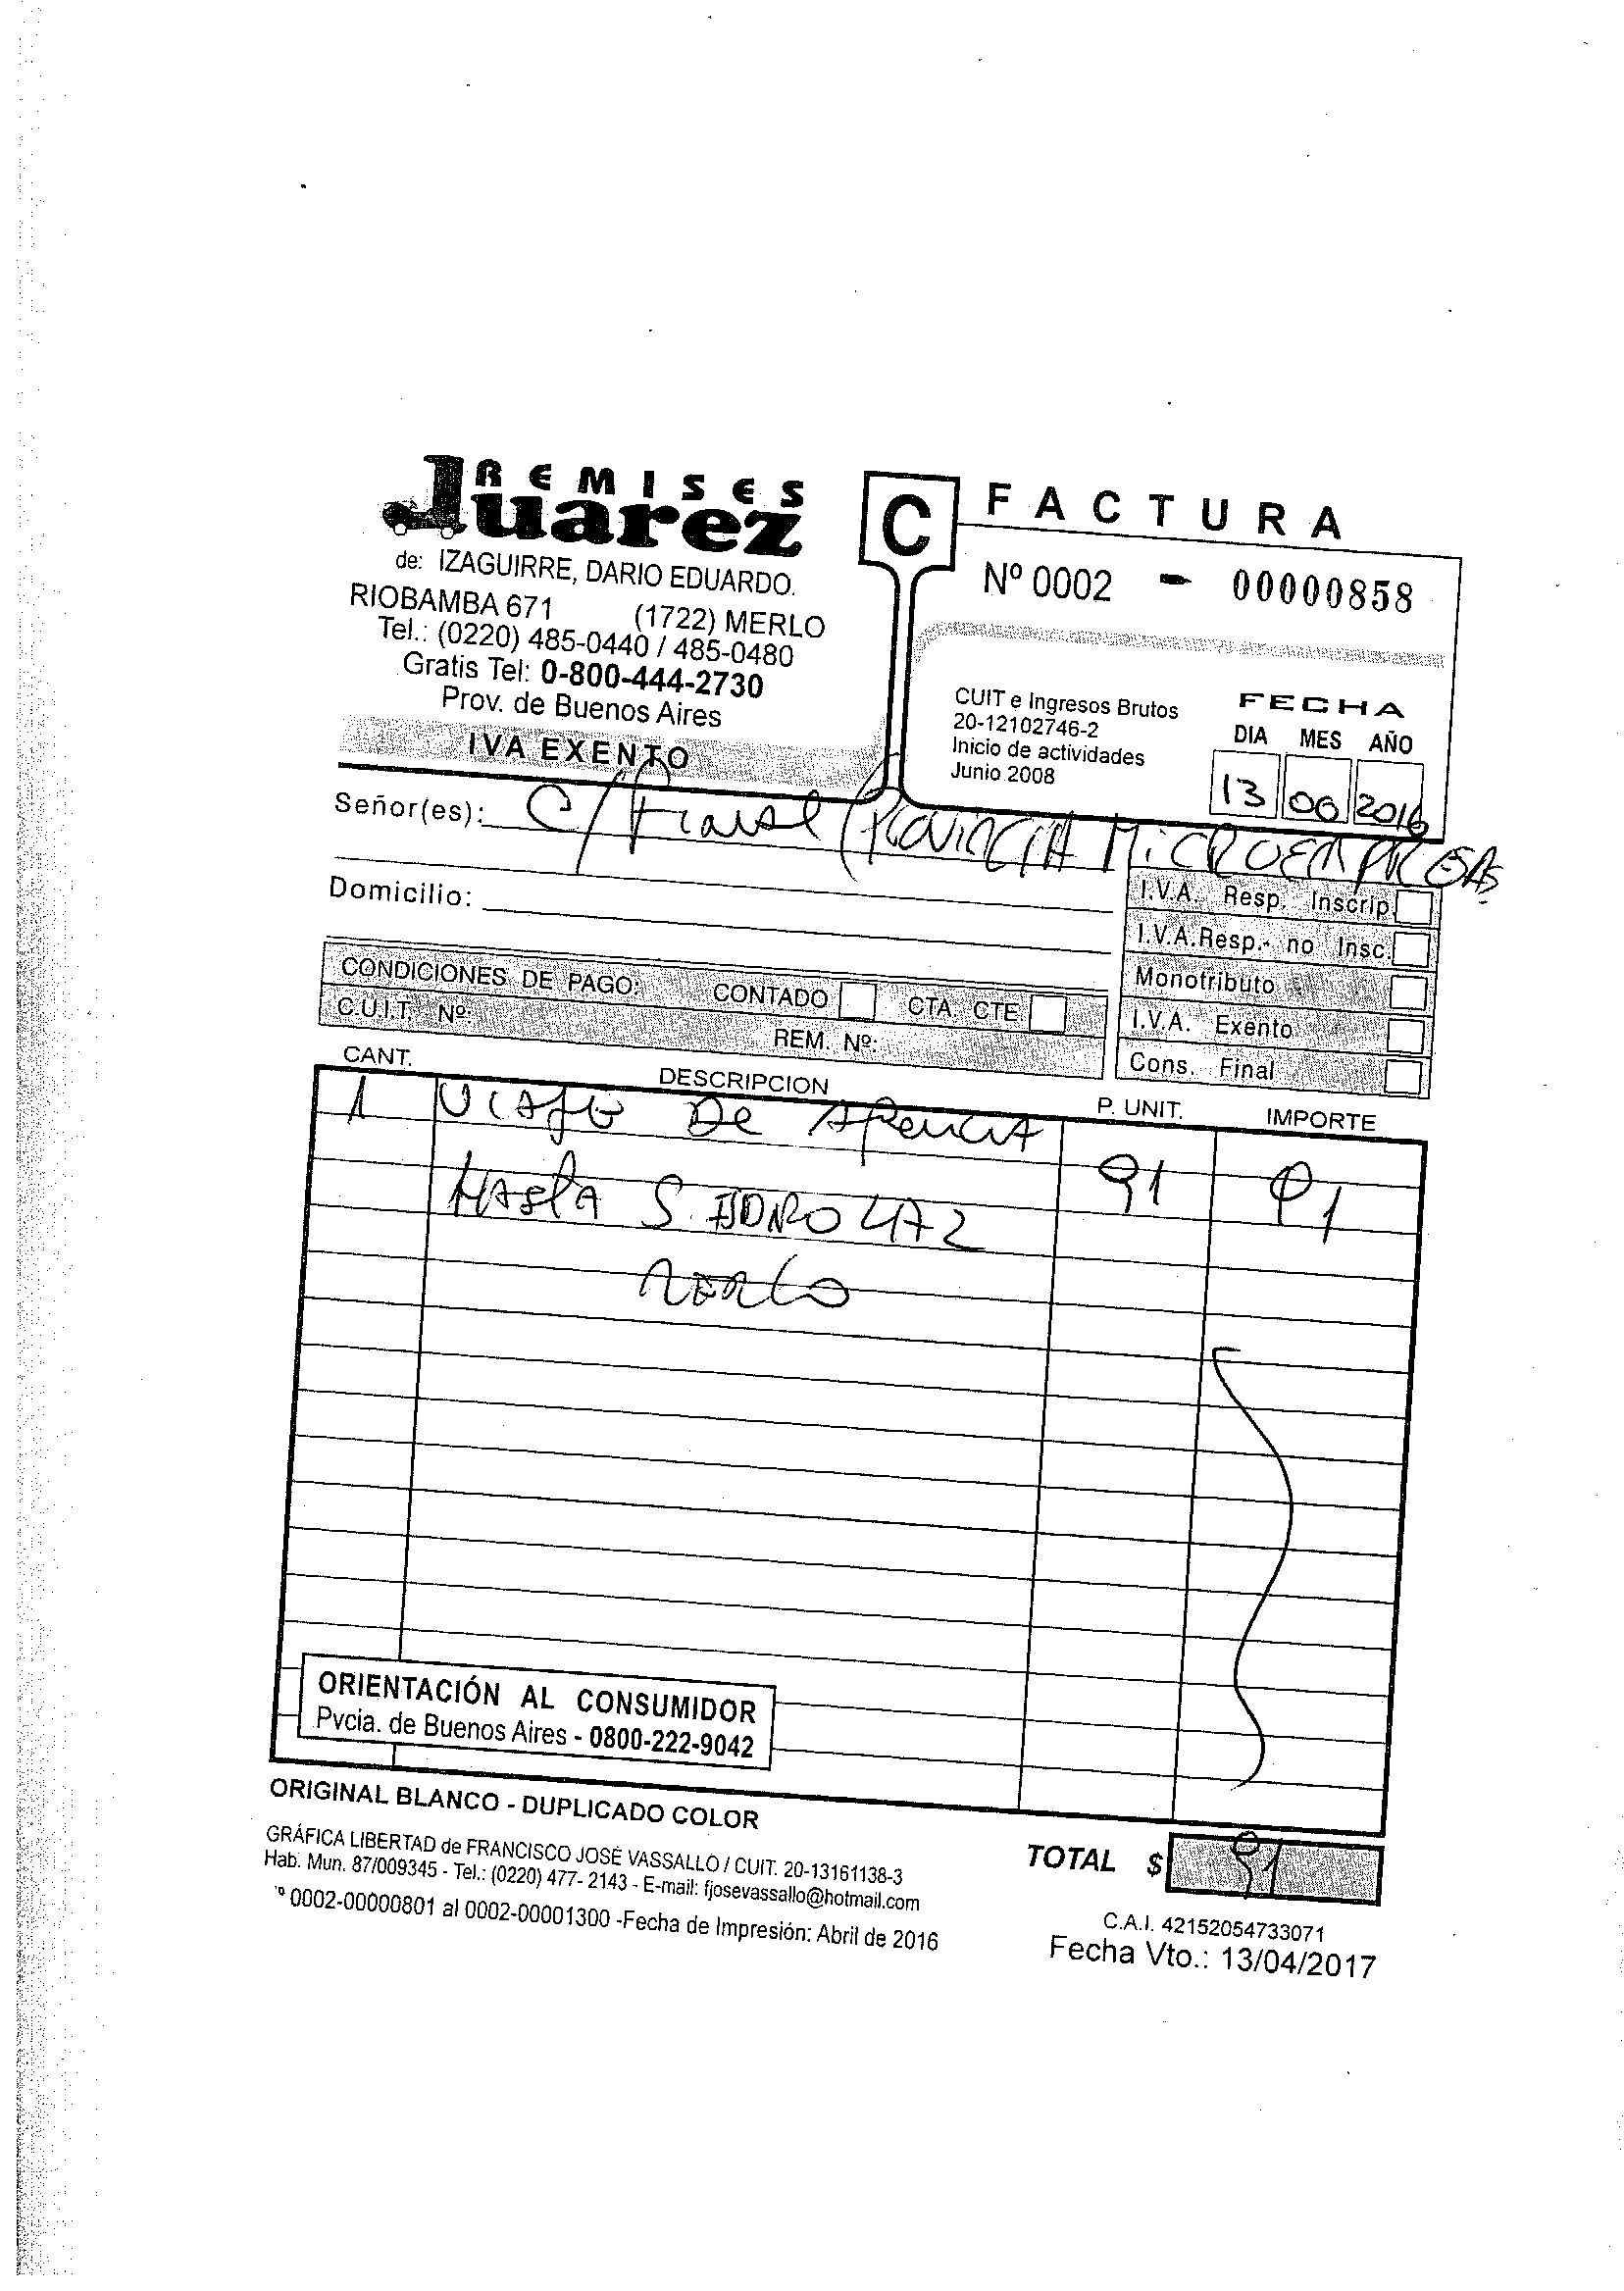 REMISES
Juarez
de: IZAGUIRRE, DARIO EDUARDO.
RIOBAMBA 671 (1722) MERLO
Tel.: (0220) 485-0440 / 485-0480
Gratis Tel: 0-800-444-2730
Prov. de Buenos Aires
IVA EXENTO
C
FACTURA
Nº 0002 - 00000858
CUIT e Ingresos Brutos
20-12102746-2
Inicio de actividades
Junio 2008
FECHA
DIA MES AÑO
13 06 2016
Señor(es): C/ (PROVINCIA MICROEMPRESAS
Domicilio:
I.V.A. Resp. Inscrip.
I.V.A. Resp. no Insc.
Monotributo
I.V.A. Exento
Cons. Final
CONDICIONES DE PAGO: CONTADO CTA. CTE
C.U.I.T. Nº: REM. Nº:
CANT. DESCRIPCION P. UNIT. IMPORTE
1 VIAJE DE AGENCIA 91 91
HASTA S.
MERLO
ORIENTACIÓN AL CONSUMIDOR
Pvcia. de Buenos Aires - 0800-222-9042
ORIGINAL BLANCO - DUPLICADO COLOR
GRÁFICA LIBERTAD de FRANCISCO JOSÉ VASSALLO / CUIT. 20-13161138-3
Hab. Mun. 87/009345 - Tel.: (0220) 477- 2143 - E-mail: fjosevassallo@hotmail.com
º 0002-00000801 al 0002-00001300 -Fecha de Impresión: Abril de 2016
TOTAL $ 91
C.A.I. 42152054733071
Fecha Vto.: 13/04/2017